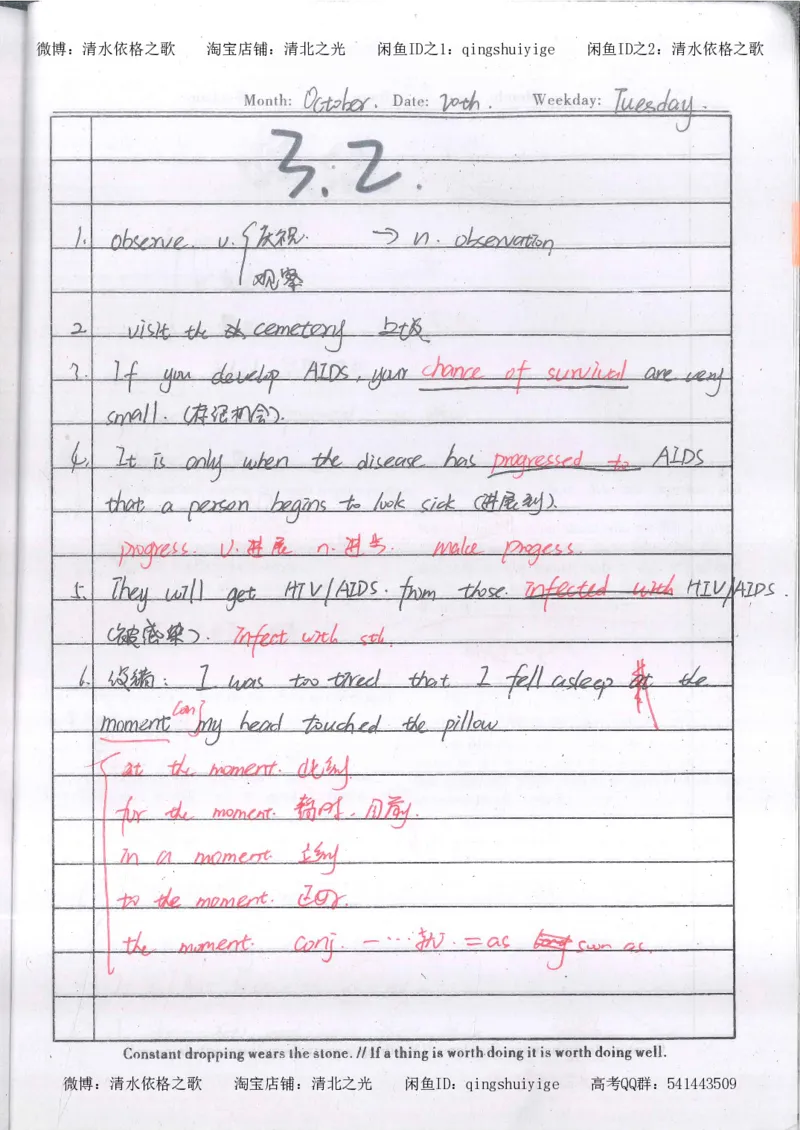 微博：清水依格之歌 淘宝店铺：清北之光 闲鱼ID之1：qingshuiyige 闲鱼ID之2：清水依格之歌
Month: October. Date: 20th. Weekday: Tuesday.
3.2.
1. observe. v. 庆祝. → n. observation
观察
2 visit the cemetery 上坟
3. If you develop AIDS, your chance of survival are very
small. (存活机会).
4. It is only when the disease has progressed to AIDS
that a person begins to look sick (进展到).
progress. v. 进展 n. 进步. make progess.
5. They will get HIV/AIDS. from those infected with HIV/AIDS.
(被感染). infect with sth.
6. 改错: I was too tired that I fell asleep at the
moment [on] my head touched the pillow.
at the moment. 此刻
for the moment. 暂时. 目前.
in a moment. 立刻
to the moment. 及时.
the moment. conj. 一…就. = as soon as.
Constant dropping wears the stone. // If a thing is worth doing it is worth doing well.
微博：清水依格之歌 淘宝店铺：清北之光 闲鱼ID：qingshuiyige 高考QQ群：541443509